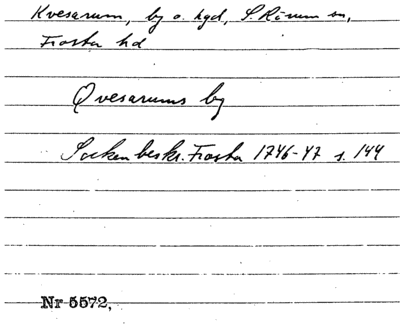 Kvesarum, by o. hgd, S. Rörum sn,
Frosta hd
Qvesarums by
Sockenbeskr. Frosta 1746-47 s. 144
Nr 5572,